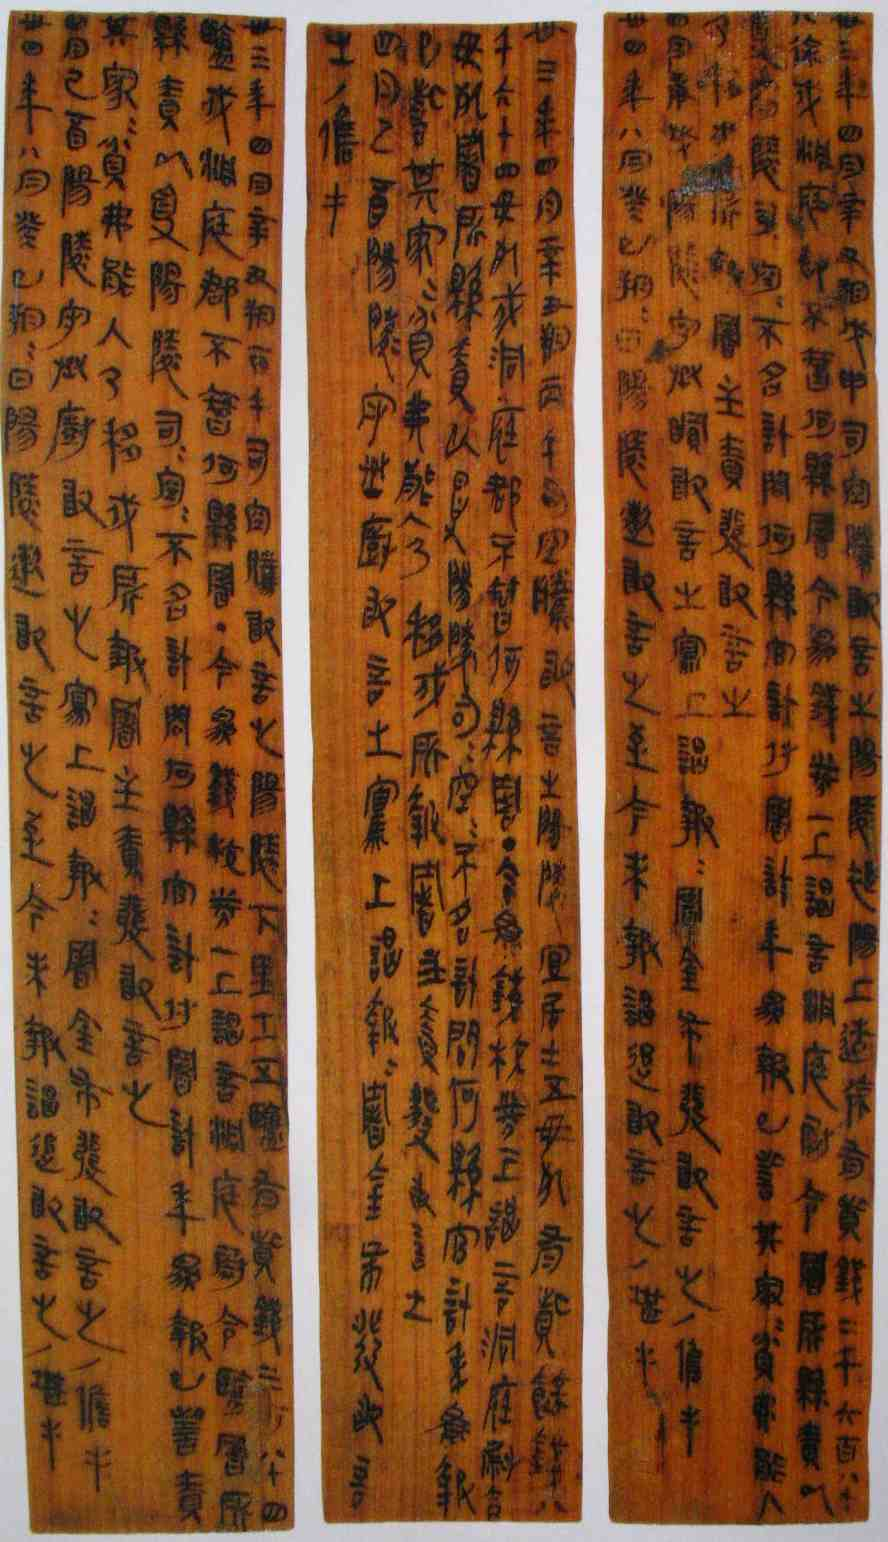 卅三年四月辛丑朔戊申司空騰敢言之陽陵褆陽上造徐有貲錢二千六百八十
八徐戍洞庭郡不智何縣署今為錢校券一上謁言洞庭尉令署所縣責以
受陽陵司=空=不名計問何縣官計付署計年為報已訾其家=貧弗能入
乃移戍所報署主責發敢言之
四月庚戌陽陵守丞㬜敢言之寫上謁報=署金布發敢言之/儋手
卅四年八月癸巳朔=日陽陵遬敢言之至今未報謁追敢言之/堪手
卅三年四月辛丑朔丙午司空騰敢言之陽陵宜居士五毋死有貲餘錢八
千六十四毋死戍洞庭郡不智何縣署·今為錢校券一上謁言洞庭尉令
毋死署所縣責以受陽陵司=空=不名計問何縣官計年為報
已訾其家=貧弗能入乃移戍所報署主責發敢言之
四月己酉陽陵守丞廚敢言之寫上謁報=署金布發敢言
之/儋手
卅三年四月辛丑朔丙午司空騰敢言之陽陵下里士五鹽有貲錢三百八十四
鹽戍洞庭郡不智何縣署·今為錢校券一上謁言洞庭尉令鹽署所
縣責以受陽陵司=空=不名計問何縣官計付署計年為報已訾責
其家=貧弗能入乃移戍所報署主責發敢言之
四月己酉陽陵守丞廚敢言之寫上謁報=署金布發敢言之/儋手
卅四年八月癸巳朔=日陽陵遬敢言之至今未報謁追敢言之/堪手